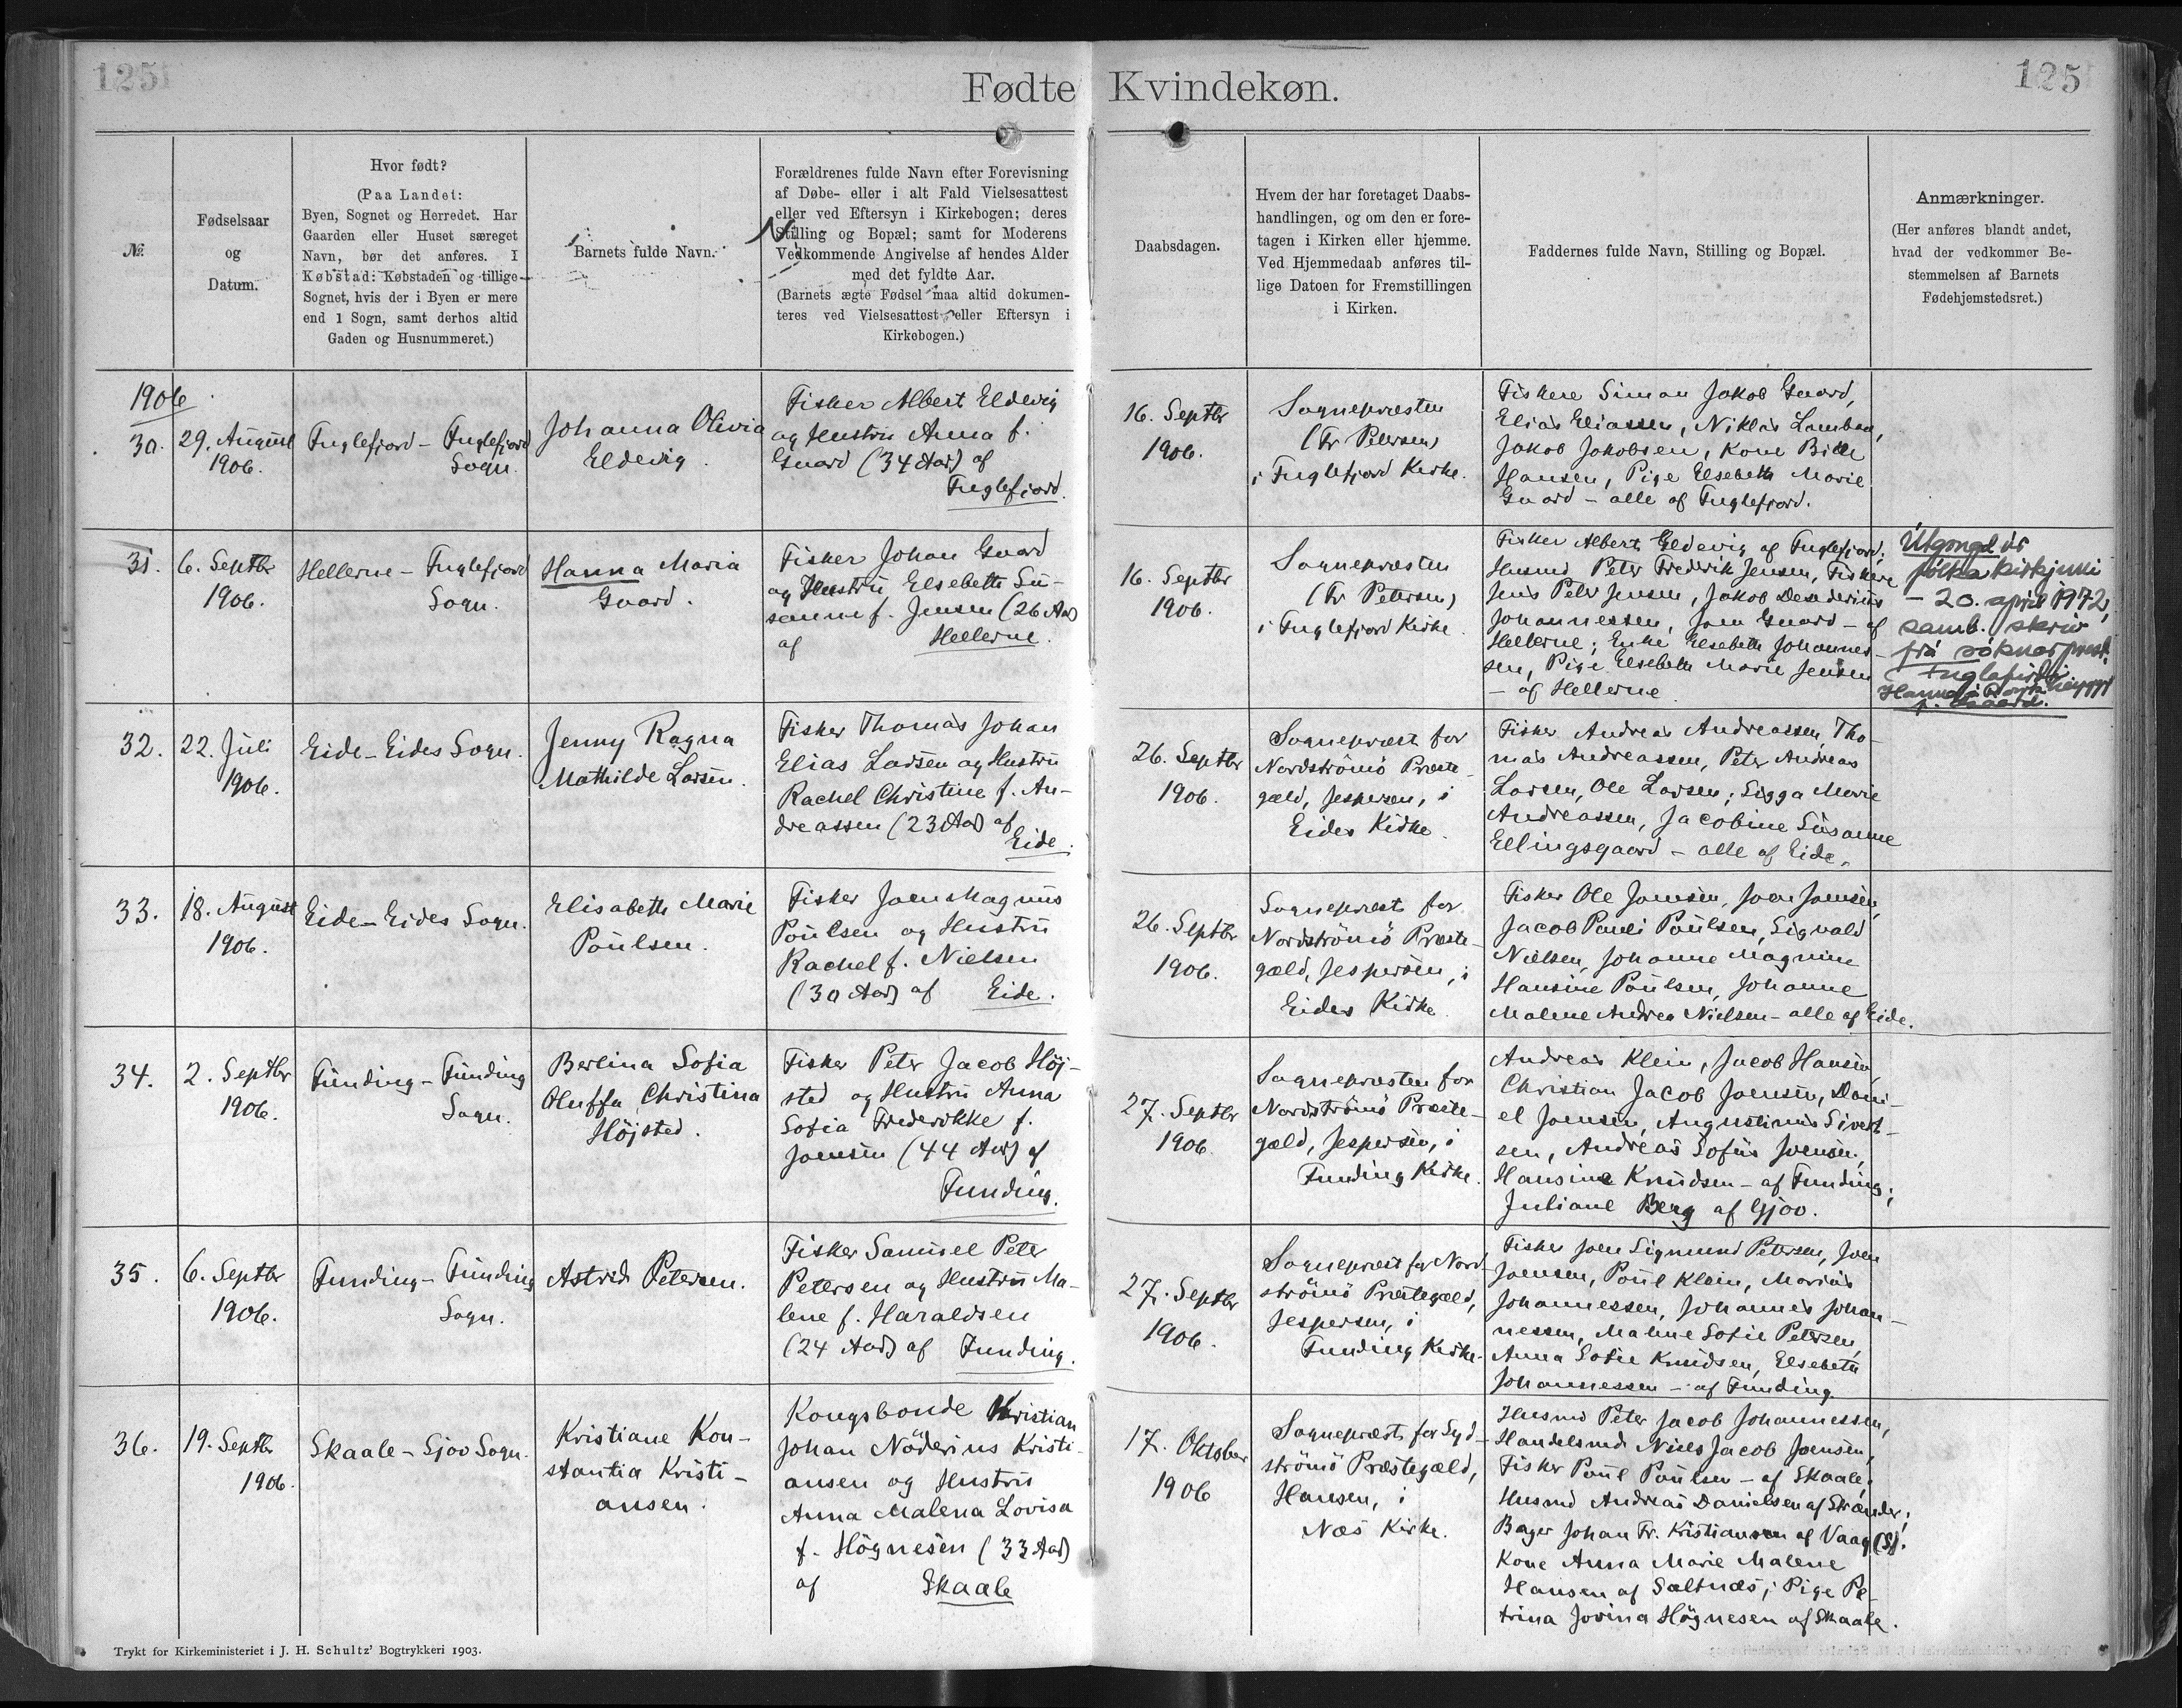 125
125
Fødte Kvindekøn.
№
Fødselsaar
og
Datum.
Hvor født?
(Paa Landet:
Byen, Sognet og Herredet. Har
Gaarden eller Huset særeget
Navn, bør det anføres. I
Købstad: Købstaden og tillige
Sognet, hvis der i Byen er mere
end 1 Sogn, samt derhos altid
Gaden og Husnummeret.)
Barnets fulde Navn.
Forældrenes fulde Navn efter Forevisning
af Døbe- eller i alt Fald Vielsesattest
eller ved Eftersyn i Kirkebogen; deres
Stilling og Bopæl; samt for Moderens
Vedkommende Angivelse af hendes Alder
med det fyldte Aar.
(Barnets ægte Fødsel maa altid dokumen-
teres ved Vielsesattest eller Eftersyn i
Kirkebogen.)
Daabsdagen.
Hvem der har foretaget Daabs-
handlingen, og om den er fore-
tagen i Kirken eller hjemme.
Ved Hjemmedaab anføres til-
lige Datoen for Fremstillingen
i Kirken.
Faddernes fulde Navn, Stilling og Bopæl.
Anmærkninger.
(Her anføres blandt andet,
hvad der vedkommer Be-
stemmelsen af Barnets
Fødehjemstedsret.)
1906
30.
29. August
1906.
Fuglefjord - Fuglefjord
Sogn.
Johanna Olivia
Eldevig.
Fisker Albert Eldevig
og Hustru Anna f.
Guard (34 Aar) af
Fuglefjord.
16. Septbr
1906.
Sognepræsten
(Fr Petersen)
i Fuglefjord Kirke.
Fiskere Simon Jakob Guard,
Elias Eliassen, Niklas Lamban,
Jakob Jakobsen, Kone Bille
Hansen, Pige Elsebeth Marie
Guard - alle af Fuglefjord.
31.
6. Septbr
1906.
Hellerne - Fuglefjord
Sogn.
Hanna Maria
Guard.
Fisker Johan Guard
og Hustru Elsebeth Su-
sanne f. Jensen (26 Aar)
af Hellerne.
16. Septbr
1906.
Sognepræsten
(Fr Petersen)
i Fuglefjord Kirke.
Fisker Albert Eldevig af Fuglefjord;
Husmd Peter Frederik Jensen, Fiskere
Jens Peter Jensen, Jakob Desiderius
Johannessen, Joen Guard - af
Hellerne; Enke Elsebeth Johannes-
sen, Pige Elsebeth Marie Jensen
- af Hellerne
Útgongd úr
fólkakirkjuni
- 20. april 1972,
samb. skriv
frá sóknarprest.
Fuglafirdi
Hanna Maria
f. Gaard.
32.
22. Juli
1906.
Eide - Eides Sogn.
Jenny Ragna
Mathilde Larsen.
Fisker Thomas Johan
Elias Larsen og Hustru
Rachel Christine f. An-
dreassen (23 Aar) af
Eide.
26. Septbr
1906.
Sognepræst for
Nordströmö Præste-
gæld, Jespersen, i
Eides Kirke.
Fisker Andreas Andreassen, Tho-
mas Andreassen, Peter Andreas
Larsen, Ole Larsen; Sigga Marie
Andreassen, Jacobine Susanne
Ellingsgaard - alle af Eide.
33.
18. August
1906.
Eide - Eides Sogn.
Elisabeth Marie
Poulsen.
Fisker Joen Magnus
Poulsen og Hustru
Rachel f. Nielsen
(30 Aar) af Eide.
26. Septbr
1906.
Sognepræst for
Nordströmö Præste-
gæld, Jespersen, i
Eides Kirke
Fisker Ole Joensen, Joen Joensen,
Jacob Pauli Poulsen, Sigvald
Nielsen, Johanne Magnine
Hansine Poulsen, Johanne
Malene Andrea Nielsen - alle af Eide.
34.
2. Septbr
1906.
Funding - Funding
Sogn.
Berlina Sofia
Oluffa Christina
Højsted.
Fisker Peter Jacob Höj-
sted og Hustru Anna
Sofia Frederikke f.
Joensen (44 Aar) af
Funding.
27. Septbr
1906
Sognepræsten for
Nordströmö Præste-
gæld, Jespersen, i
Funding Kirke.
Andreas Klein, Jacob Hansen,
Christian Jacob Joensen, Dani-
el Joensen, Augustinus Sivert-
sen, Andreas Sofus Joensen,
Hansine Knudsen - af Funding;
Juliane Berg af Gjov.
35.
6. Septbr
1906.
Funding - Funding
Sogn.
Astrid Petersen.
Fisker Samuel Peter
Petersen og Hustru Ma-
lene f. Haraldsen
(24 Aar) af Funding.
27. Septbr
1906.
Sognepræst for Nord-
strömö Præstegæld,
Jespersen, i
Funding Kirke.
Fisker Joen Sigmund Petersen, Joen
Joensen, Poul Klein, Marius
Johannessen, Johannes Johan-
nessen, Malene Sofie Petersen,
Anna Sofie Knudsen, Elsebeth
Johannessen - af Funding.
36.
19. Septbr
1906.
Skaale - Sjov Sogn.
Kristiane Kon-
stantia Kristi-
ansen.
Kongsbonde Kristian
Johan Nöderius Kristi-
ansen og Hustru
Anna Malena Lovisa
f. Högnesen (33 Aar)
af Skaale
17. Oktober
1906
Sognepræst for Syd-
strömö Præstegæld,
Hansen, i
Næs Kirke.
Husmd Peter Jacob Johannessen,
Handelsmd Niels Jacob Joensen,
Fisker Poul Poulsen - af Skaale;
Husmd Andreas Danielsen af Strænder;
Bager Johan Fr. Kristiansen af Vaag (S).
Kone Anna Marie Malene
Hansen af Saltnæs; Pige Pe-
trina Jovina Högnesen af Skaale.
Trykt for Kirkeministeriet i J. H. Schultz' Bogtrykkeri 1903.